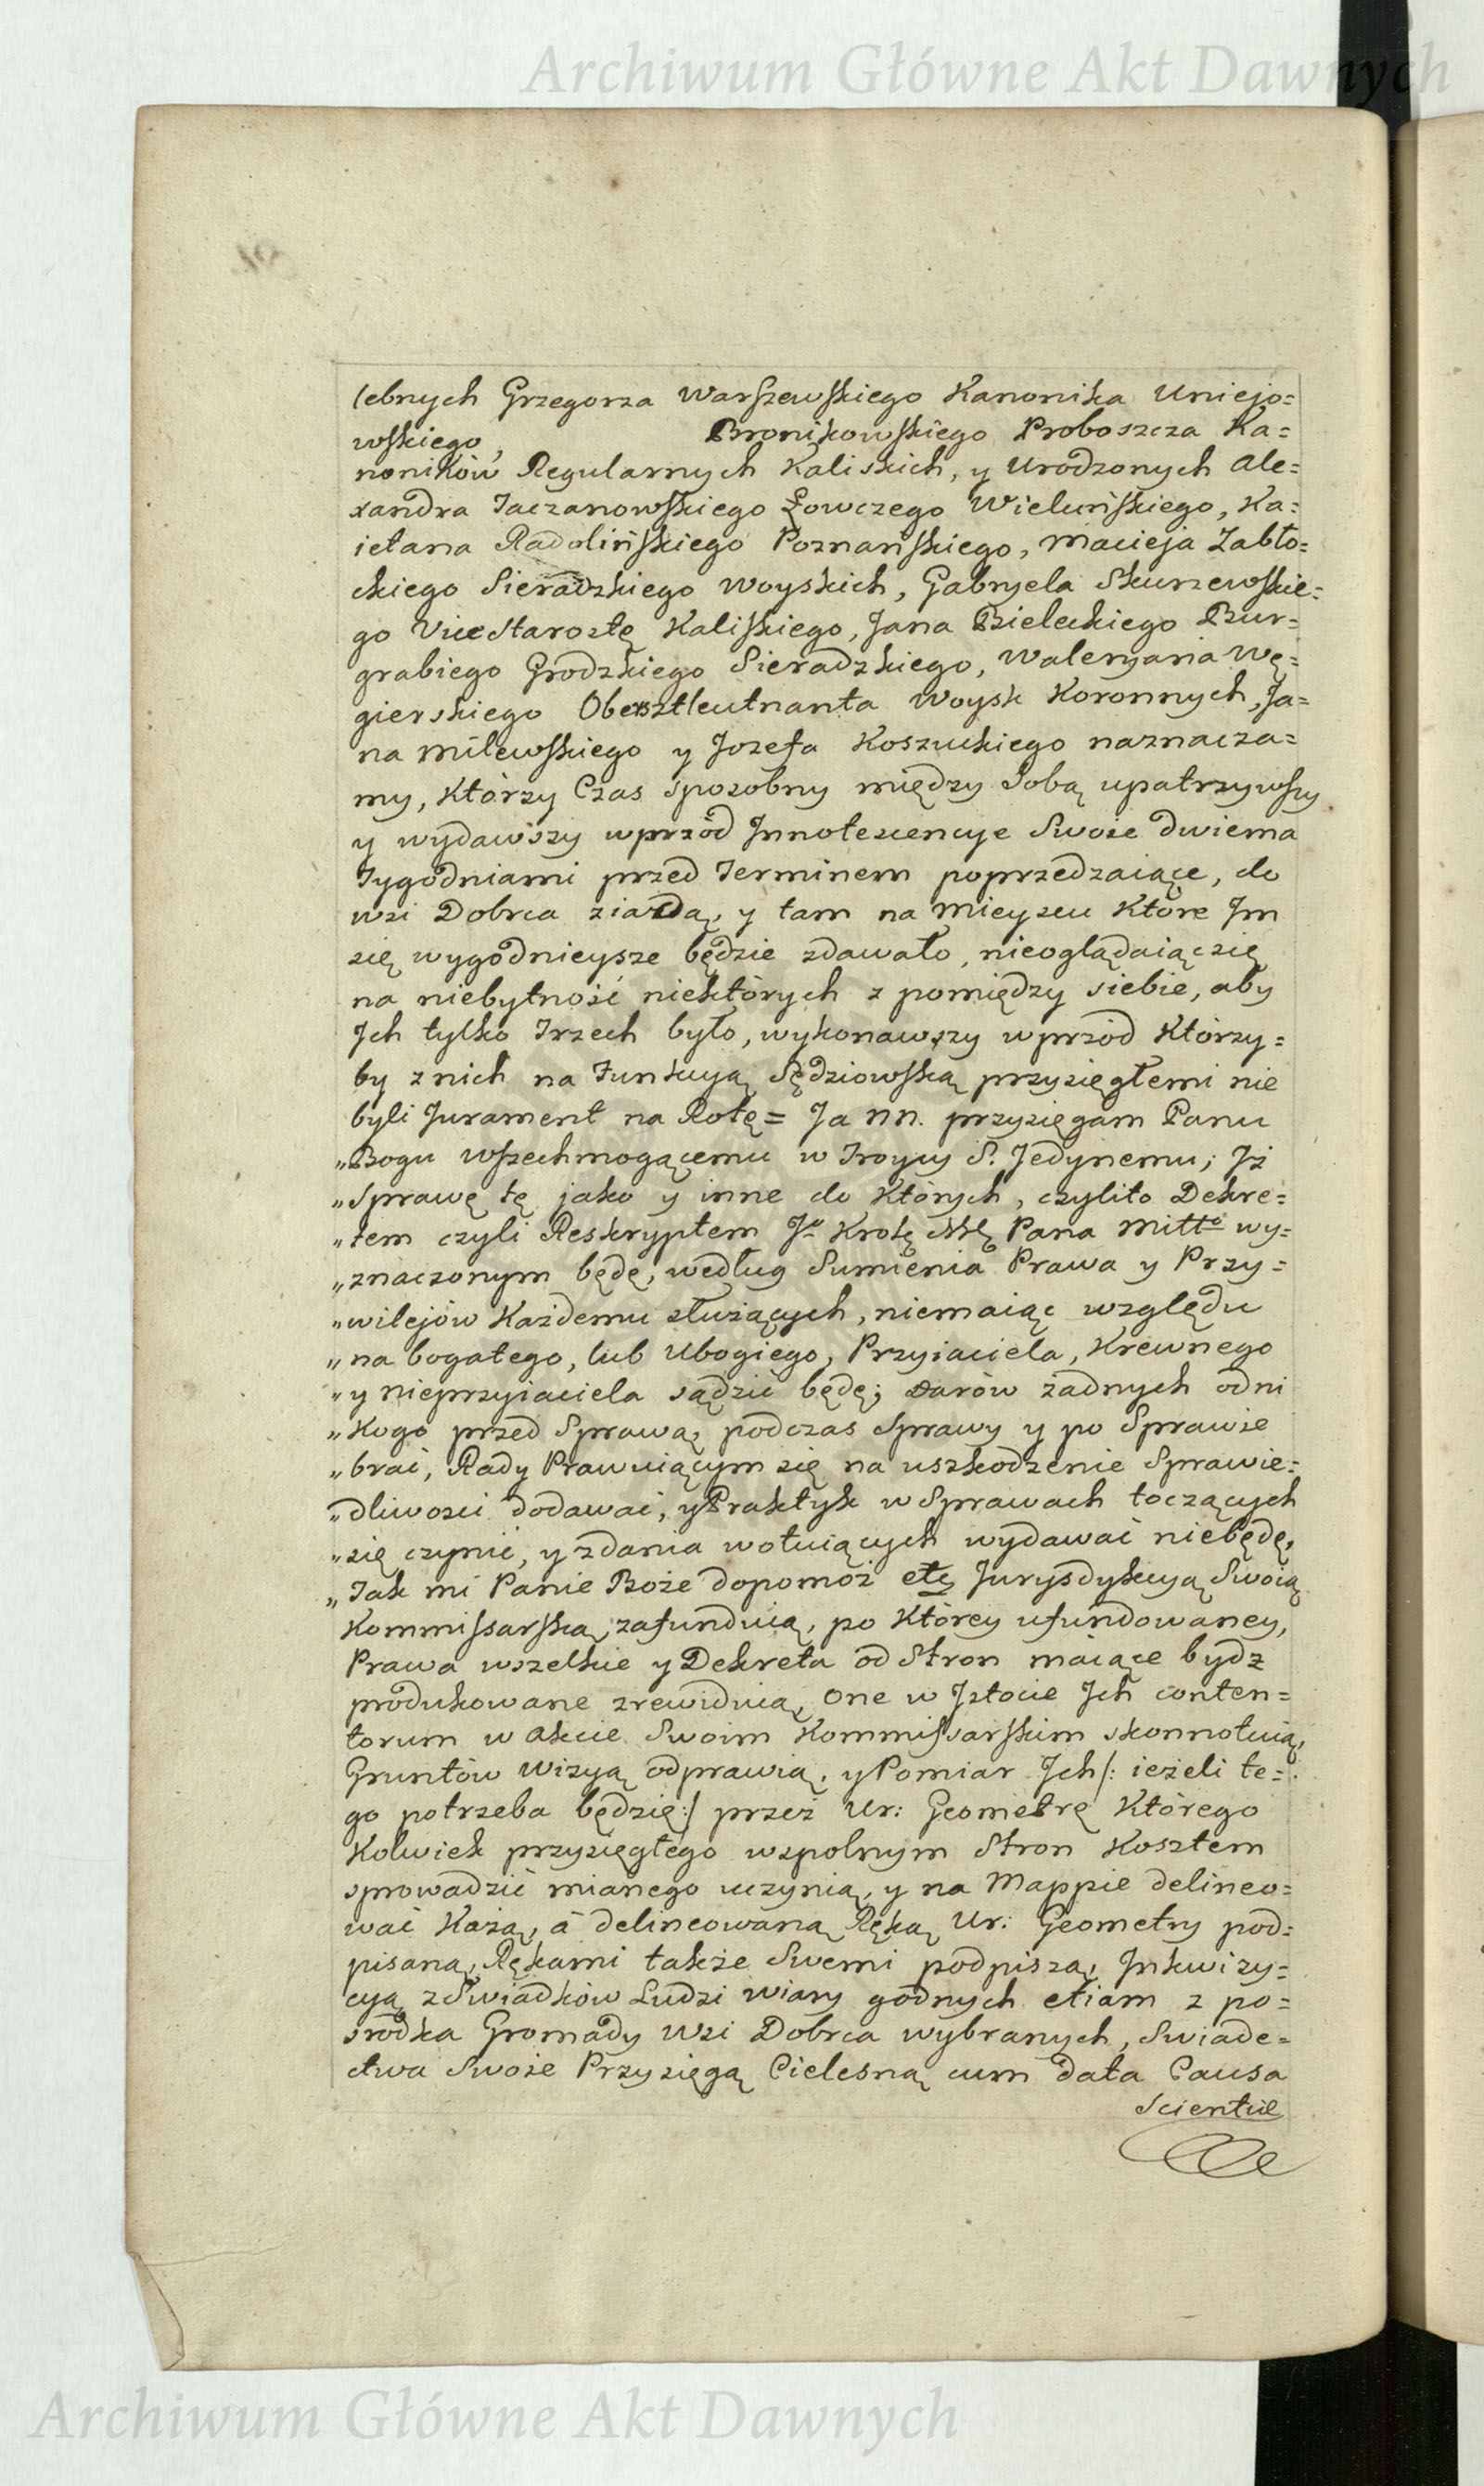 Archiwum Główne Akt Dawnych
lebnych Grzegorza Warszewskiego Kanonika Uniejo=
wskiego, Bronikowskiego Proboszcza Ka=
noników Regularnych Kaliskich, y Urodzonych Ale=
xandra Taczanowskiego Łowczego Wieluńskiego, Ka=
ietana Radolińskiego Poznańskiego, Macieja Zabło=
ckiego Sieradzkiego Woyskich, Gabryela Skurzewskie=
go ViceStarostę Kaliskiego, Jana Bieleckiego Bur=
grabiego Grodzkiego Sieradzkiego, Waleryana Wę=
gierskiego Obersztleutnanta Woysk Koronnych, Ja=
na Milewskiego y Jozefa Koszuckiego naznacza=
my, Którzy Czas sposobny między Sobą upatrzywszy
y wydawszy wprzód Innotescencye Swoie dwiema
Tygodniami przed Terminem poprzedzaiące, do
wsi Dobrca ziadą, y tam na Mieyscu Które Im
się wygodnieysze będzie zdawało, nieoglądaiąc się
na niebytność niektórych z pomiędzy siebie, aby
Ich tylko Trzech było, wykonawszy wprzód Którzy=
by z nich na Funkcyą Sędziowską przysięgłemi nie
byli Jurament na Rotę= Ja NN. przysięgam Panu
„Bogu Wszechmogącemu w Troycy S. Jedynemu; Iż
„Sprawę tę jako y inne do Których, czylito Dekre=
„tem czyli Reskryptem Jo Krolę Mę Pana Mitto wy=
„znaczonym będę, według Sumienia Prawa y Przy=
„wilejów Każdemu służących, niemaiąc względu
„na bogatego, lub Ubogiego, Przyiaciela, Krewnego
„y nieprzyiaciela sądzić będę; Darów żadnych odni
„Kogo przed Sprawą, podczas Sprawy y po Sprawie
„brać, Rady Prawuiącym się na uszkodzenie Sprawie=
„dliwości dodawać, y Praktyk w Sprawach toczących
„się czynić, y zdania wotuiących wydawać niebędę,
„Tak mi Panie Boże dopomoż etc Jurysdykcyą Swoią
Kommissarską zafunduią, po Którey ufundowaney,
Prawa wszelkie y Dekreta od Stron maiące bydz
produkowane zrewiduią, One w Istocie Ich conten=
torum w Akcie Swoim Kommissarskim skonnotuią,
Gruntów Wizyą odprawią, y Pomiar Ich /: ieżeli te=
go potrzeba będzie :/ przez Ur: Geometrę Którego
Kolwiek przysięgłego wspolnym Stron Kosztem
sprowadzić mianego uczynią, y na Mappie delineo=
wać Każą, á delineowaną Ręką Ur: Geometry pod=
pisaną, Rękami także Swemi podpiszą, Inkwizy=
cyą z Swiadków Ludzi wiary godnych etiam z po=
środka Gromady Wsi Dobrca wybranych, Swiade=
ctwa Swoie Przysięgą Cielesną cum data Causa
Scientiæ
Archiwum Główne Akt Dawnych